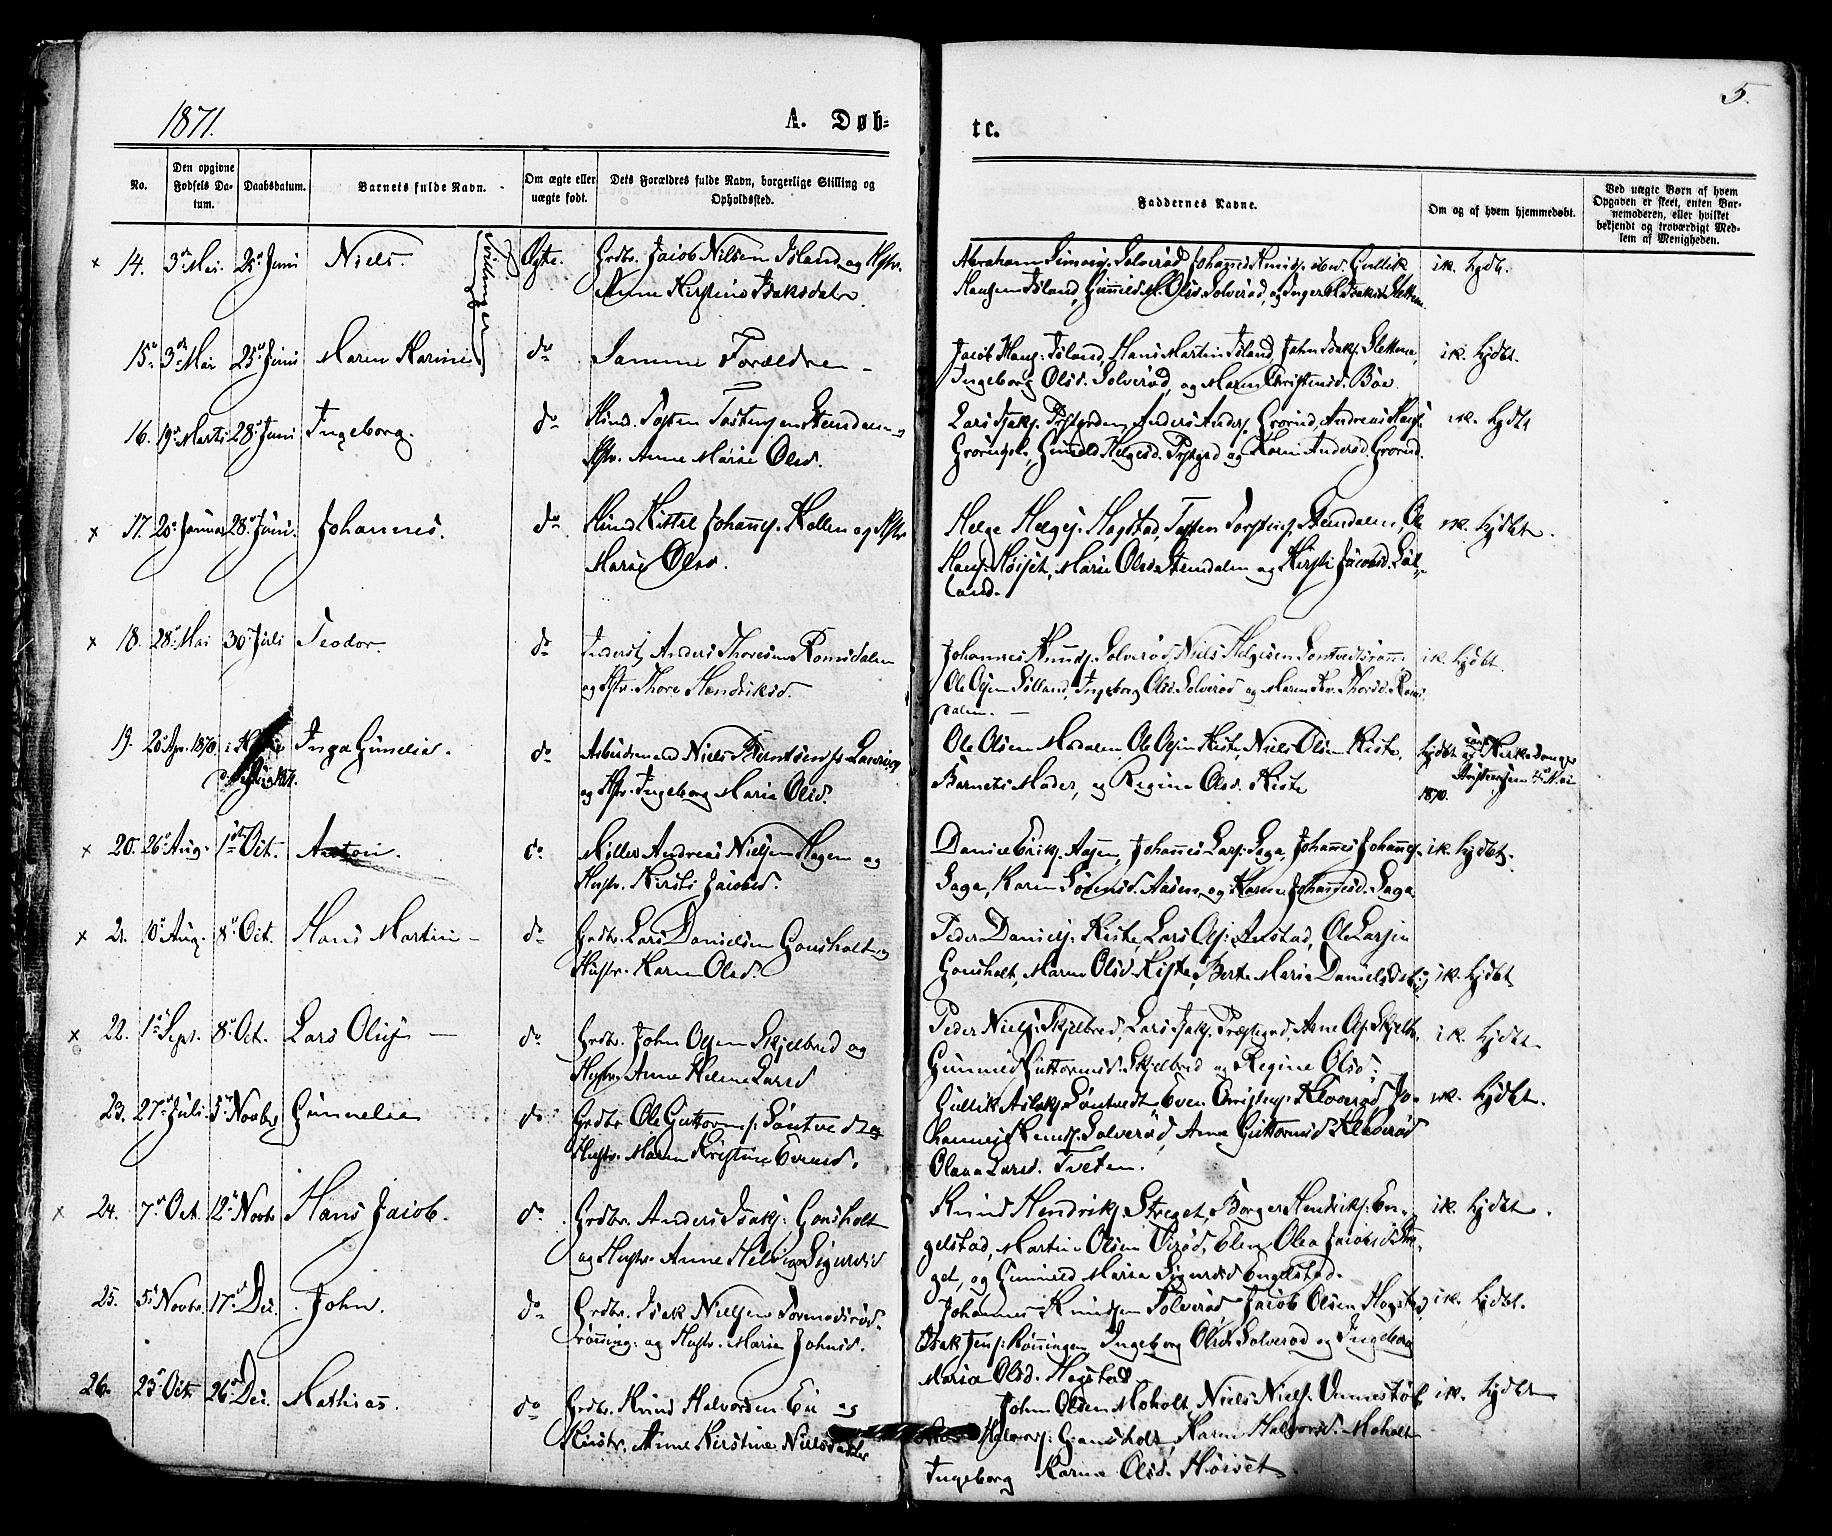 1871.
A. Døb-
te.
5.
No.
Den opgivne Fødsels Da-tum.
Daabsdatum.
Barnets fulde Navn.
Om ægte eller uægte født.
Dets Forældres fulde Navn, borgerlige Stilling og Opholdssted.
Faddernes Navne.
Om og af hvem hjemmedøbt.
Ved uægte Børn af hvem Opgaven er skeet, enten Bar-nemoderen, eller hvilket bekjendt og troværdigt Med-lem af Menigheden.
x 14. 3 Mai 25 Juni Niels. Tvillinger Ægte. Grdbr. Jacob Nilsen Island og Hstr.
Anne Kirstine Isaksdatr.
Abraham Solverød Johannes Knuds. ibid. Gullik
Hansen Island, Olsd. Solverød, og Inger
ik. hjdt.
15. 3 Mai 25 Juni Maren Karine do Samme Forældre -
Jacob Hans. Island, Hans Martin Island, John Isaks. Sletten,
Ingeborg Olsd. Solverød, og Maren Christensd. Bøe
ik. hjdbt.
16. 19 Marts 28 Juni Ingeborg. do Hmd. Tosten Tostensen Stendalen og
Hstr. Anne Marie Olsd.
Lars Isaks. Anders Anders. Grorud, Andreas Hans.
Helgesd. og Karen Andersd. Grorud.
ik. hjdbt
x 17. 20 Januar 28 Juni. Johannes. do Hmd. Kittil Johannes. Kollen og Hstr
Marie Olsd.
Helge Helges. Hogstad, Tosten Torstens. Stendalen, Ole
Hans. Høiset, Marie Olsd. Stendalen og Kirsti Jacobsd. Løl-
land.
ik. hjdbt.
x 18. 28 Mai 30 Juli Teodor. do Inderst Anders Thoresen Romsdalen
og Hstr. Thore Hendriksd.
Johannes Knuds. Solverød, Niels Helgesen
Ole Olsen Ingeborg Olsd. Solverød og Maren Thorsd. Roms-
dalen. -
ik. hjdbt.
19. 20 Apr. 1870 Inga Gunelia. do Arbeidsmand Niels
og Hstr. Ingeborg Maria Olsd.
Ole Olsen Modalen, Ole Olsen Kiste, Niels Olsen Kiste,
Barnets Moder, og Regine Olsd. Kiste
hjdbt af Kirkesanger
Mai
1870.
x 20. 26 Aug. 1ste Oct. Anton. do Møller Andreas Nielsen Hagen og
Hustr. Kirsti Jacobsd.
Daniel Eriks. Aasen, Johannes Lars. Saga, Johannes Johannes.
Saga, Karen Sørensd. Aasen, og Karen Johannesd. Saga
ik. hjdbt.
x 21. Aug. 8 Oct. Hans Martin - do Grdbr. Lars Danielsen Gonsholt og
Hustr. Karen Olsd.
Peder Daniels. Kiste, Lars Ols. Ole Larsen
Gonsholt, Maren Olsd. Kiste, Berte Maria Danielsd.
ik. hjdbt
x 22. 1ste Sept. 8 Oct. Lars Oluf - do Grdbr. John Olsen Skjelbred og
Hustr. Anne Helene Larsd
Peder Niels. Skjelbred, Lars Isaks. Præstegrd, Arne Ols. Skjelb.,
Gunnild Guttormsd. Skjelbred og Regine Olsd.
ik. hjdbt.
23. 27 Juli 5 Novbr Gunnelia do Grdbr. Ole Guttorms. Sontvedt og
Hustr. Maren Kristine Evensd.
Gullik Aslaks. Sontvedt Even Kloverød Jo-
hannes Knuds. Solverød, Anne Guttormsd Kloverød
Olava Larsd. Tveten.
ik. hjdbt.
x 24. 7 Oct. 12 Novbr Hans Jacob. do Grdbr. Anders Isaks. Gonsholt
og Hustr. Anne Helvig Sigurdsd
Knud Hendriks. Streget, Borger Hendriks. En-
gelstad, Martin Olsen Elen Olea Jacobsd Stre-
get, og Gunnild Maria Sigurdsd Engelstad.
ik. hjdbt.
25. 5 Novbr. 17 Dec. John. do Grdbr. Isak Nielsen
rønning. og Hustr. Maria Johnsd.
Johannes Knudsen Solverød Jacob Olsen Hogstad,
Isak Jens. Rønningen Ingeborg Olsd. Solverød og Ingeborg
Maria Olsd. Hogstad
ik. hjdbt.
26. 23 Oct. 26 Dec. Mathias. do Grdbr. Knud Halvorsen Eie og
Hustr. Anne Kirstine Nielsdatter
John Olsen Moholt, Niels Niels.
Halvors. Gonsholt, Karen Halvorsd. Moholt
Ingeborg Karine Olsd. Høiset.
ik. hjdbt